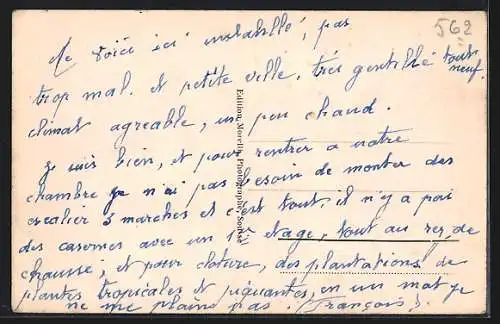 562
Me voici ici installé, pas
trop mal. et petite ville, très gentille tout
neuf.
climat agreable, un peu chaud.
je suis bien, et pour rentrer a notre
chambre je n'ai pas besoin de monter des
escalier 3 marches et c'est tout. il n'y a pas
des casernes avec un 1er etage, tout au rez de
chaussé, et pour cloture, des plantations de
plantes tropicales et piquantes, en un mot je
ne me plains pas. (François).
Edition Morelly, Photographe, Sousse